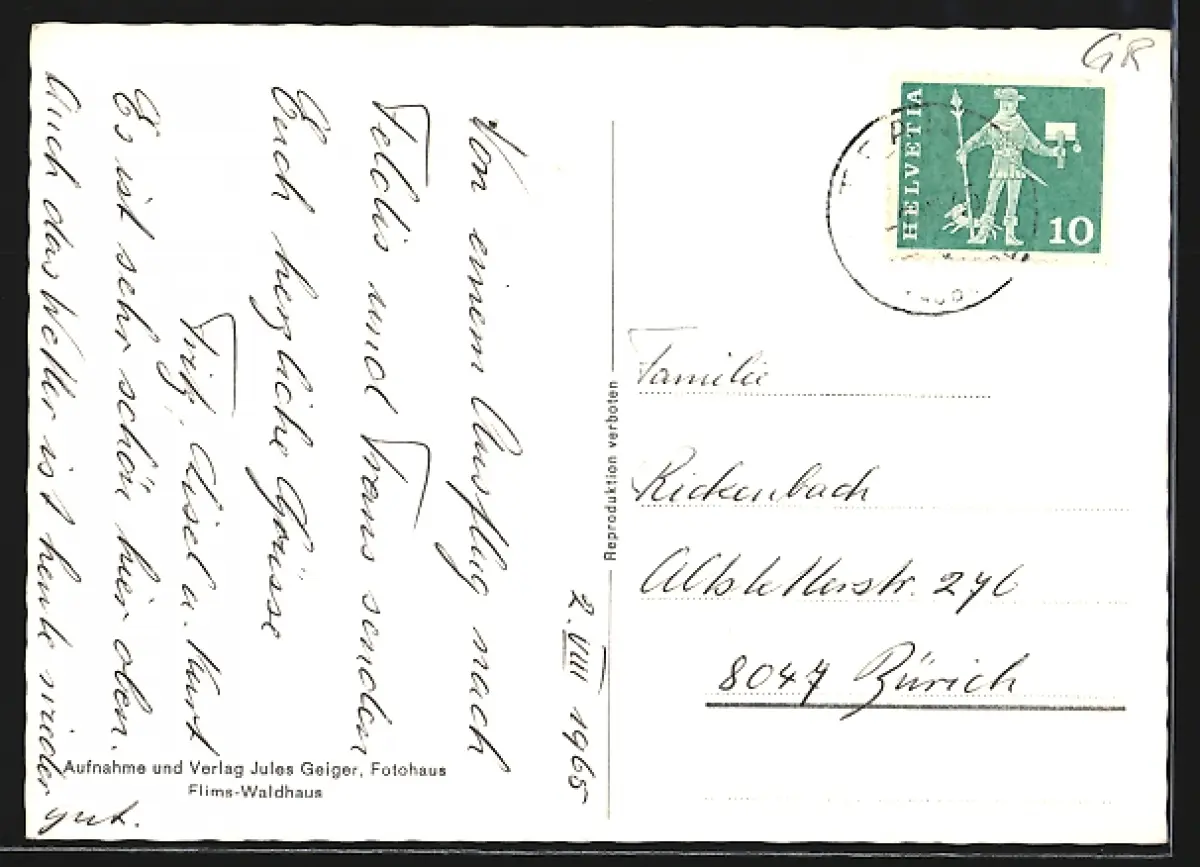 2. VIII 1965
Von einem Ausflug nach
Feldis und Trans senden
Euch herzliche Grüsse
Fritz, Lisel u. Kurt
Es ist sehr schön hier oben.
Auch das Wetter ist heute wieder
gut.
Aufnahme und Verlag Jules Geiger, Fotohaus
Flims-Waldhaus
Reproduktion verboten
GR
HELVETIA
10
Familie
Rickenbach
Altstetterstr. 276
8047 Zürich